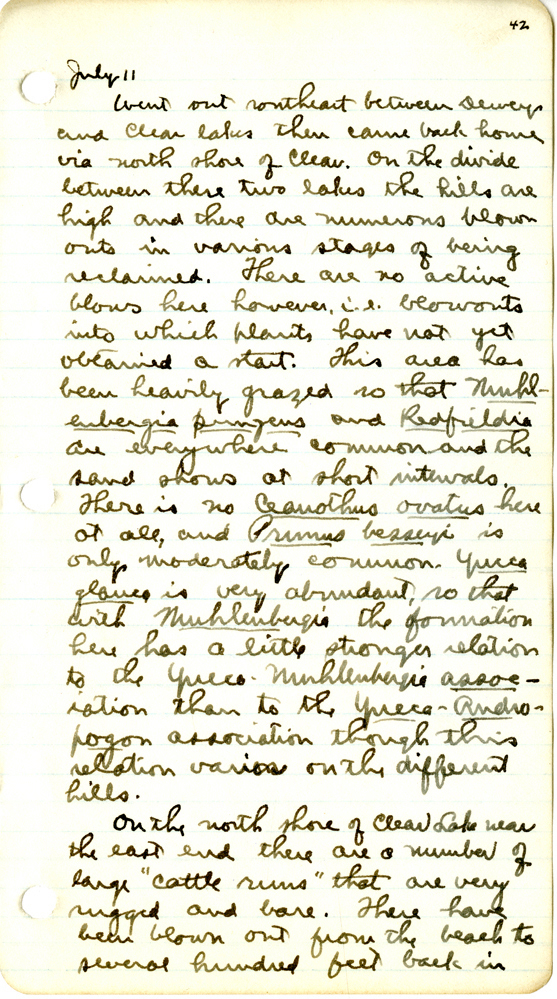 42
July 11
Went out southeast between Deweys
and Clear lakes then came back home
via north shore of Clear. On the divide
between these two lakes the hills are
high and there are numerous blow
outs in various stages of being
reclaimed. There are no active
blows here however, i.e. blowouts
into which plants have not yet
obtained a start. This area has
been heavily grazed so that Muhl-
enbergia pungens and Redfieldia
are everywhere common and the
sand shows at short intervals.
There is no Ceanothus ovatus here
at all, and Prunus besseyi is
only moderately common. Yucca
glauca is very abundant, so that
with Muhlenbergia the formation
here has a little stronger relation
to the Yucca-Muhlenbergia assoc-
iation than to the Yucca-Andro-
pogon association though this
relation varies on the different
hills.
On the north shore of Clear Lake near
the east end there are a number of
large "cattle runs" that are very
rugged and bare. These have
been blown out from the beach to
several hundred feet back in